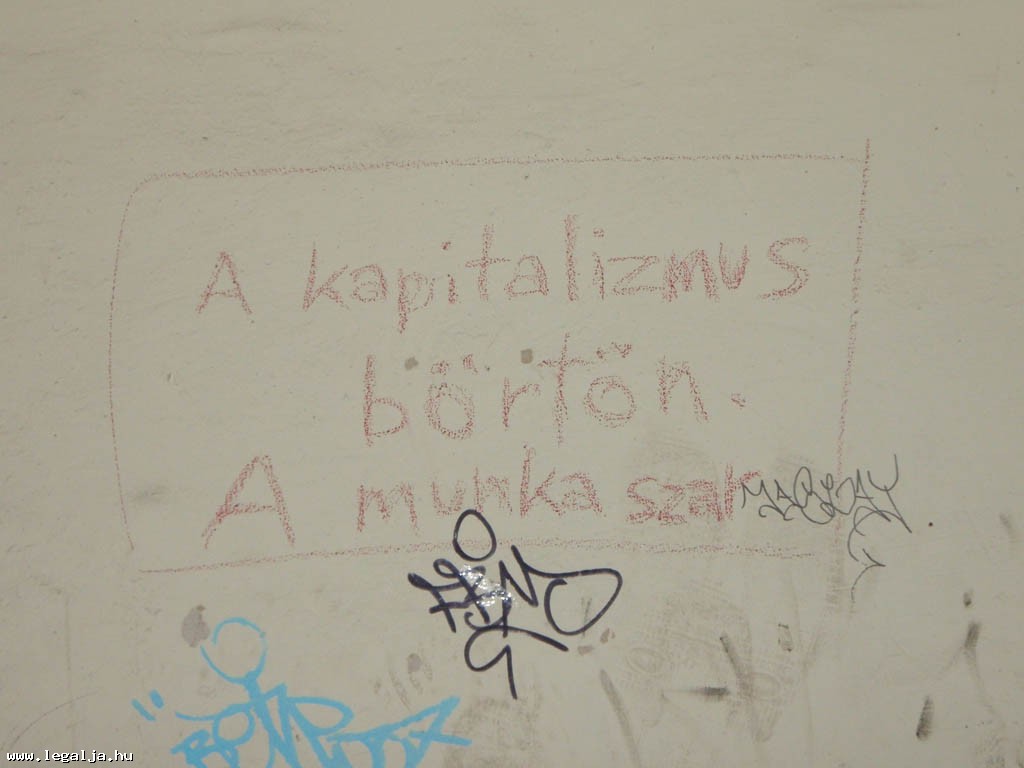 A kapitalizmus
börtön.
A munka szar
www.legalja.hu